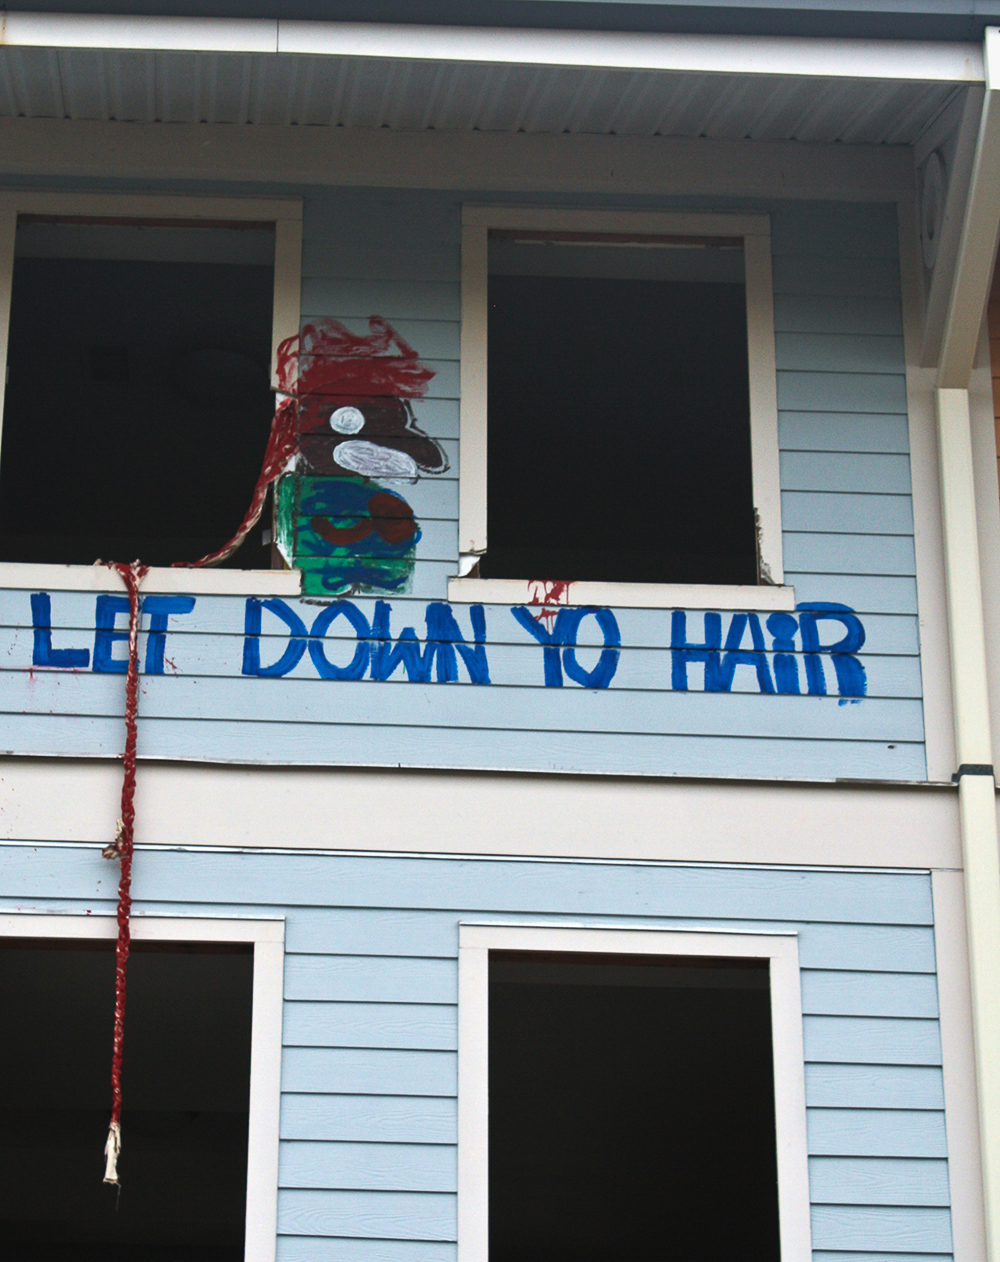 LET DOWN YO HAiR